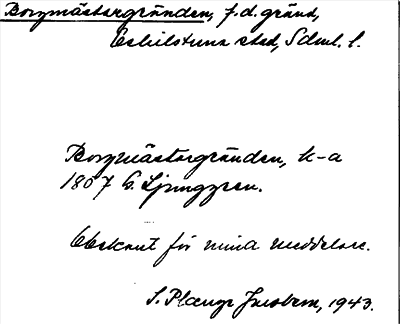 Borgmästargränden, f.d. gränd,
Eskilstuna stad, Sdml. l.
Borgmästargränden, k-a
1807 C. Ljunggren.
Obekant för mina meddelare.
S. Plænge Jacobson, 1943.